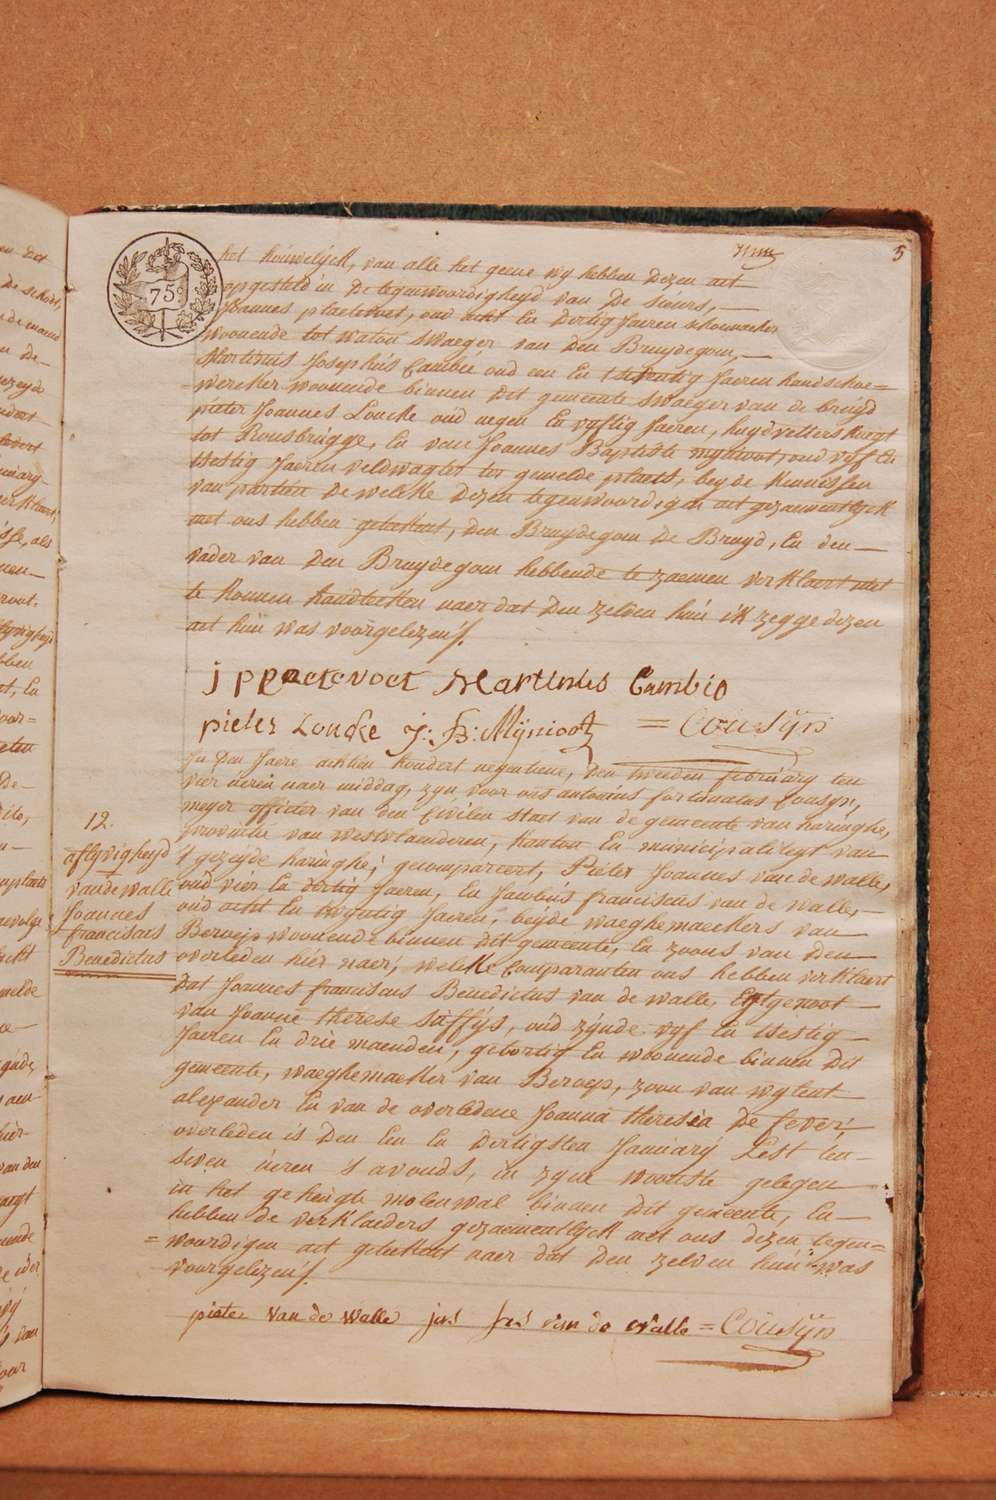 5
75
het houwelijck, van alle het geene wy hebben dezen act
opgesteld in de tegenwoordigheyd van de sieurs, —
Joannes plaetevoet, oud acht en dertig Jaeren schoenmaeker
woonende tot watou swaeger van den Bruydegom, —
Martinus Josephus Cambie oud een en Jaeren handschoe=
=wercker woonende binnen dit gemeente swaeger van de bruyd
pieter Joannes Loucke oud negen en vyftig Jaeren, huydvetters knegt
tot Rousbrugge, en van Joannes Baptiste mynioot, oud vyf en
tsestig Jaeren veldwagter ter gemelde plaets, beyde kennissen
van partien de welcke dezen tegenwoordigen act gezamentlyck
met ons hebben geteekent, den Bruydegom de Bruyd, en den —
vader van den Bruydegom hebbende te zaemen verklaert niet
te konnen handteeken naer dat den zelven hun ik zegge dezen
act hun was voorgelezen/.
j p Plaetevoet Martinus Cambie
pieter Loucke J: B: Mijnioot = Cousyn
In den Jaere achtien hondert negentiene, den tweeden february ten
vier ueren naer middag, zyn voor ons antonius fortunatus Cousyn,
meyer officier van den Civilen staet van de gemeente van haringhe,
provintie van westvlaenderen, kanton en municipaliteyt van
12.
aflyvigheyd
van de walle
Joannes
franciscus
Benedictus
't gezeijde haringhe; gecompareert, Pieter Joannes van de walle,
oud vier en dertig Jaeren, en Jacobus franciscus van de walle, —
oud acht en twyntig Jaeren, beijde waeghemaeckers van
Beroep woonende binnen dit gemeente, en zoons van den
overleden hier naer, welcke Comparanten ons hebben verklaert
dat Joannes franciscus Benedictus van de walle, Egtgenoot —
van Joanne therese Suffys, oud zynde vyf en tsestig —
Jaeren en drie maenden, gebortig en woonende binnen dit
gemeente, waeghemaeker van Beroep, zoon van wylent
alexander en van de overledene Joanna theresia De fever,
overleden is den een en dertigsten January Lest ten —
seven ueren 's avonds, in zyne woonste gelegen
in het gehengte molenwal binnen dit gemeente, en —
hebben de verklaeders gezaementlyck met ons dezen tegen=
=woordigen act geteekent naer dat den zelven hun was
voorgelezen/.
pieter van de walle jac: frs: van de walle = Cousyn